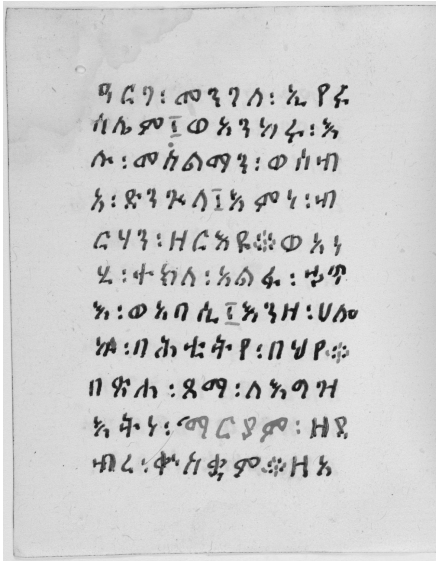 ዓርገ፡መንገለ፡ኢየሩ
ሰሌም፤ወአንከሩ፡እ
ሉ፡መሰልማን፡ወሰብ
አ፡ድንጕለ፤እምነ፡ብ
ርሃን፡ዘርእዩ፨ወአነ
ሂ፡ተክለ፡አልፋ፡ኃጥ
እ፡ወአባሲ፤እንዘ፡ሀሎ
ኩ፡በሕቲትየ፡በህየ፨
በጽሐ፡ጾማ፡ለእግዝ
እትነ፡ማርያም፡ዘደ
ብረ፡ቍስቋም፨ዘአ